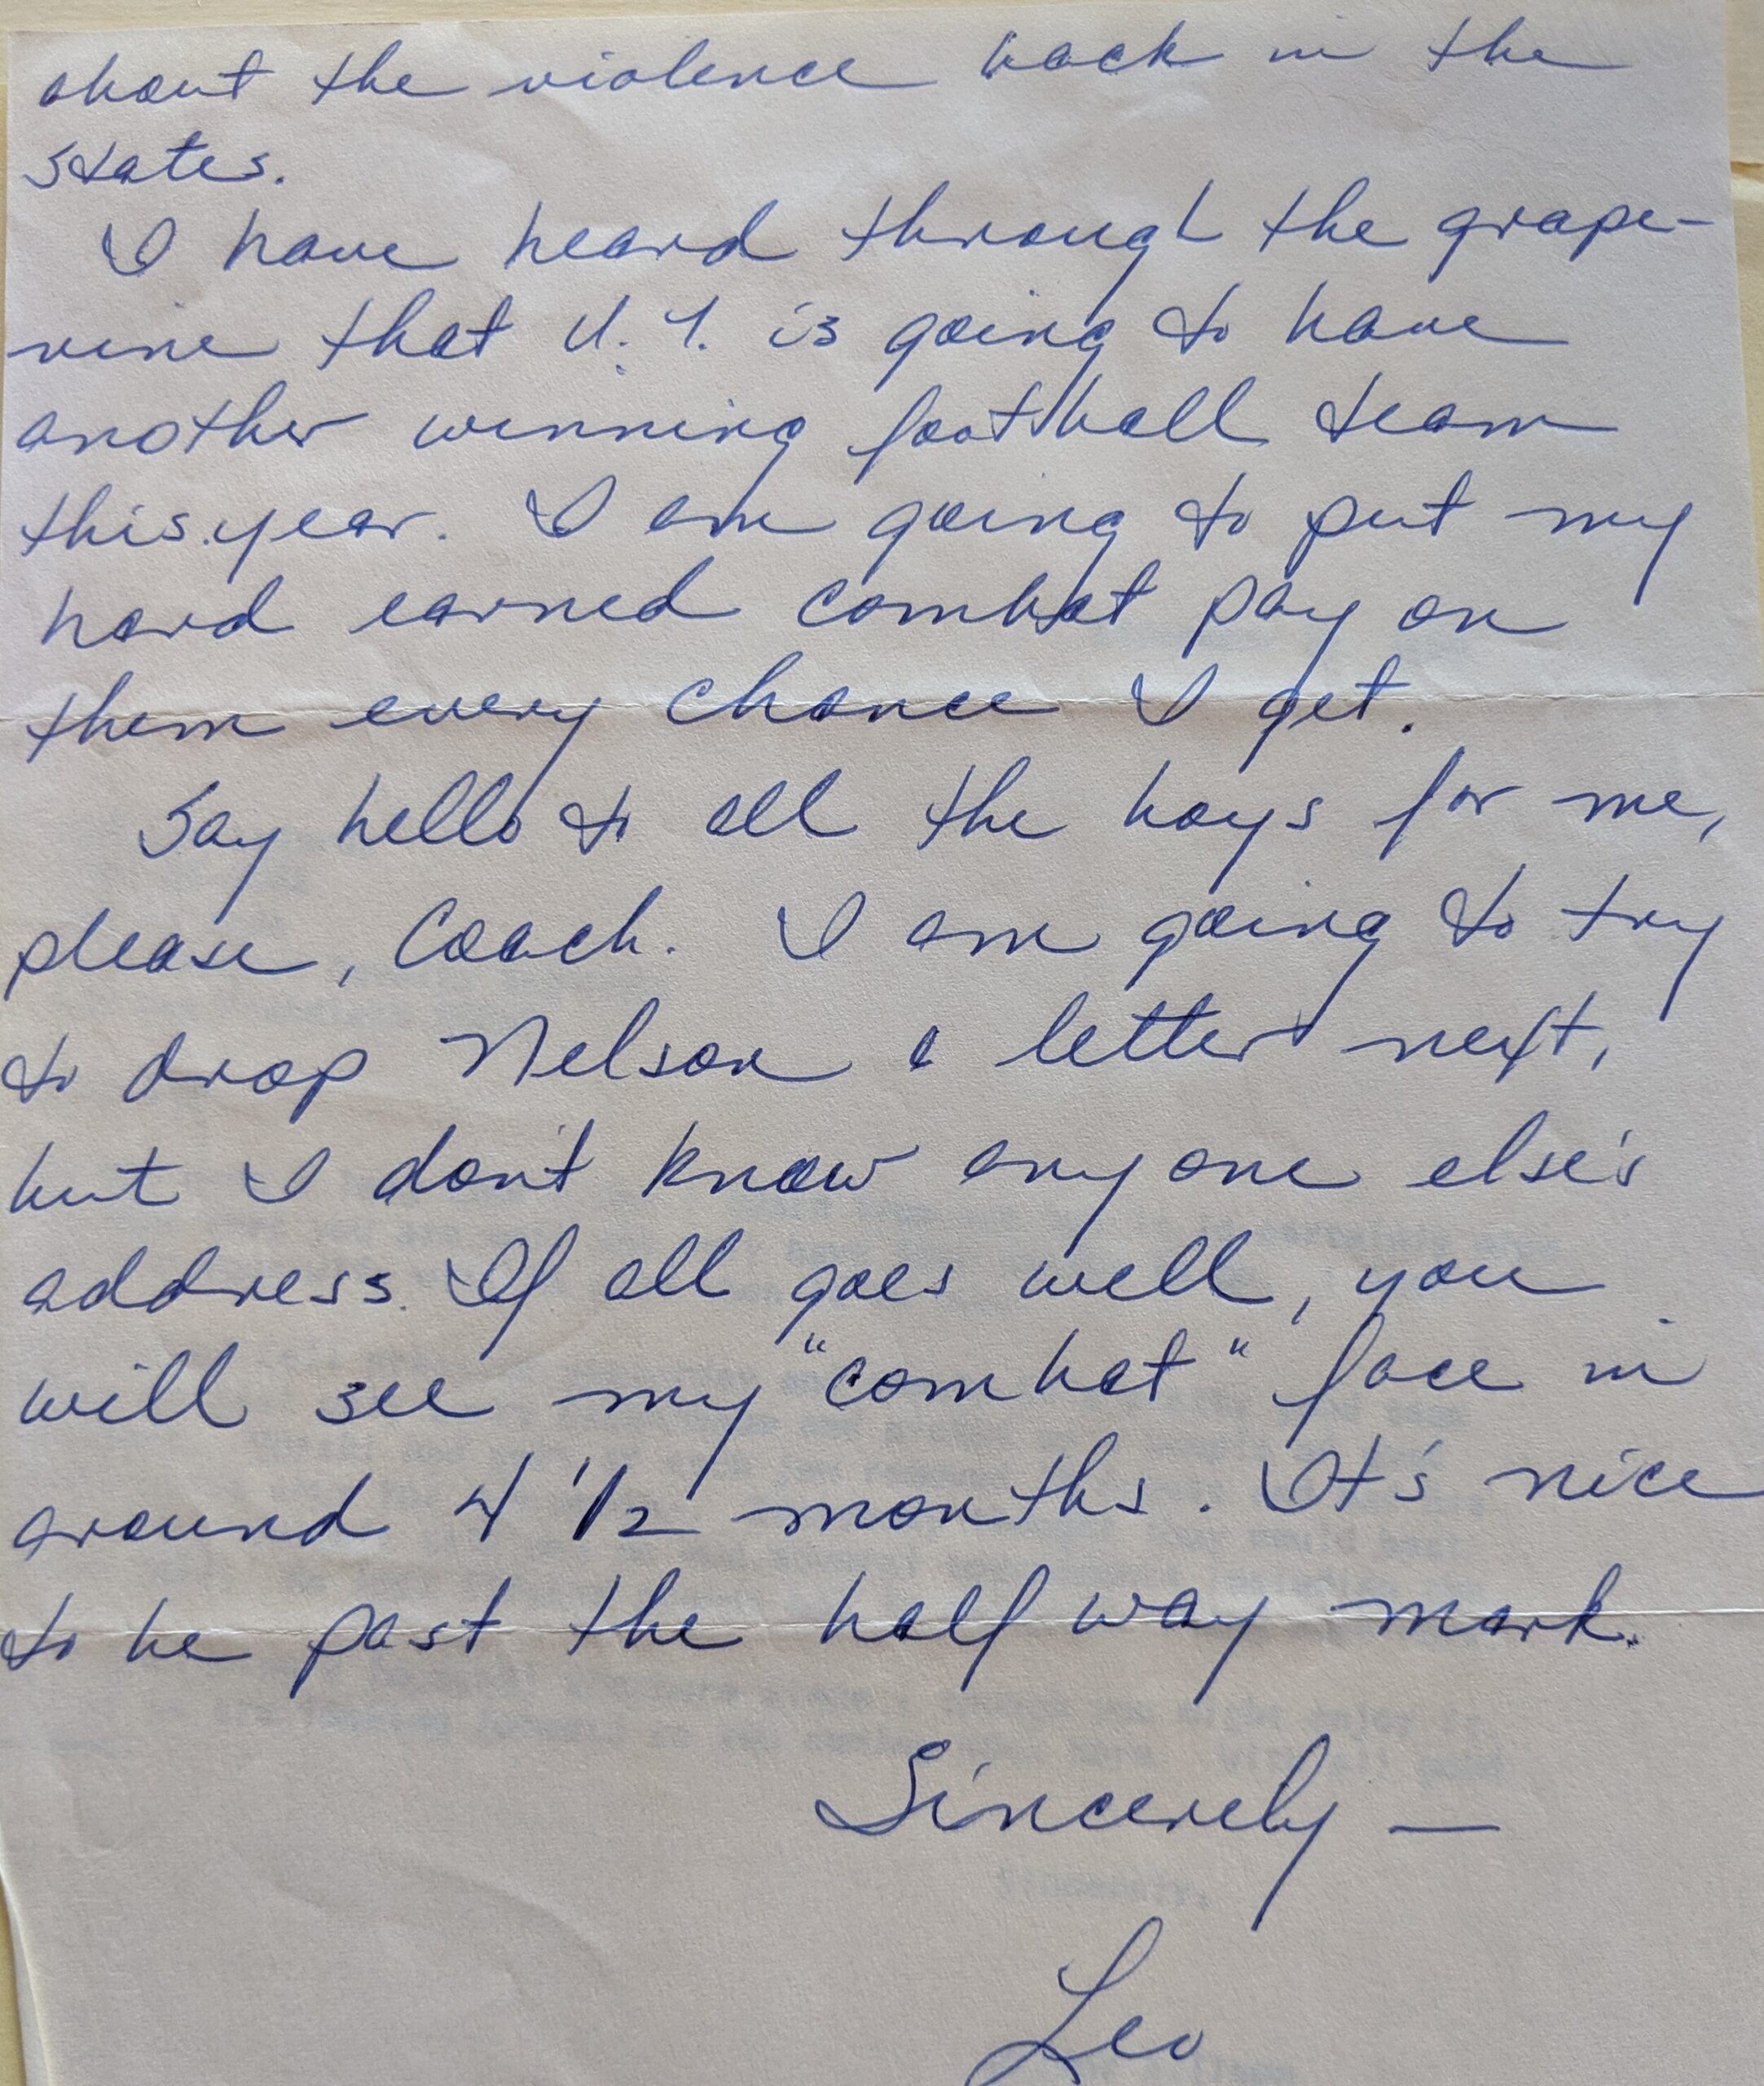 about the violence back in the
states.
I have heard through the grape-
vine that U.T. is going to have
another winning football team
this year. I am going to put my
hard earned combat pay on
them every chance I get.
Say hello to all the boys for me,
please, Coach. I am going to try
to drop Nelson a letter next,
but I don't know any one else's
address. If all goes well, you
will see my "combat" face in
around 4 1/2 months. It's nice
to be past the half way mark.
Sincerely —
Leo